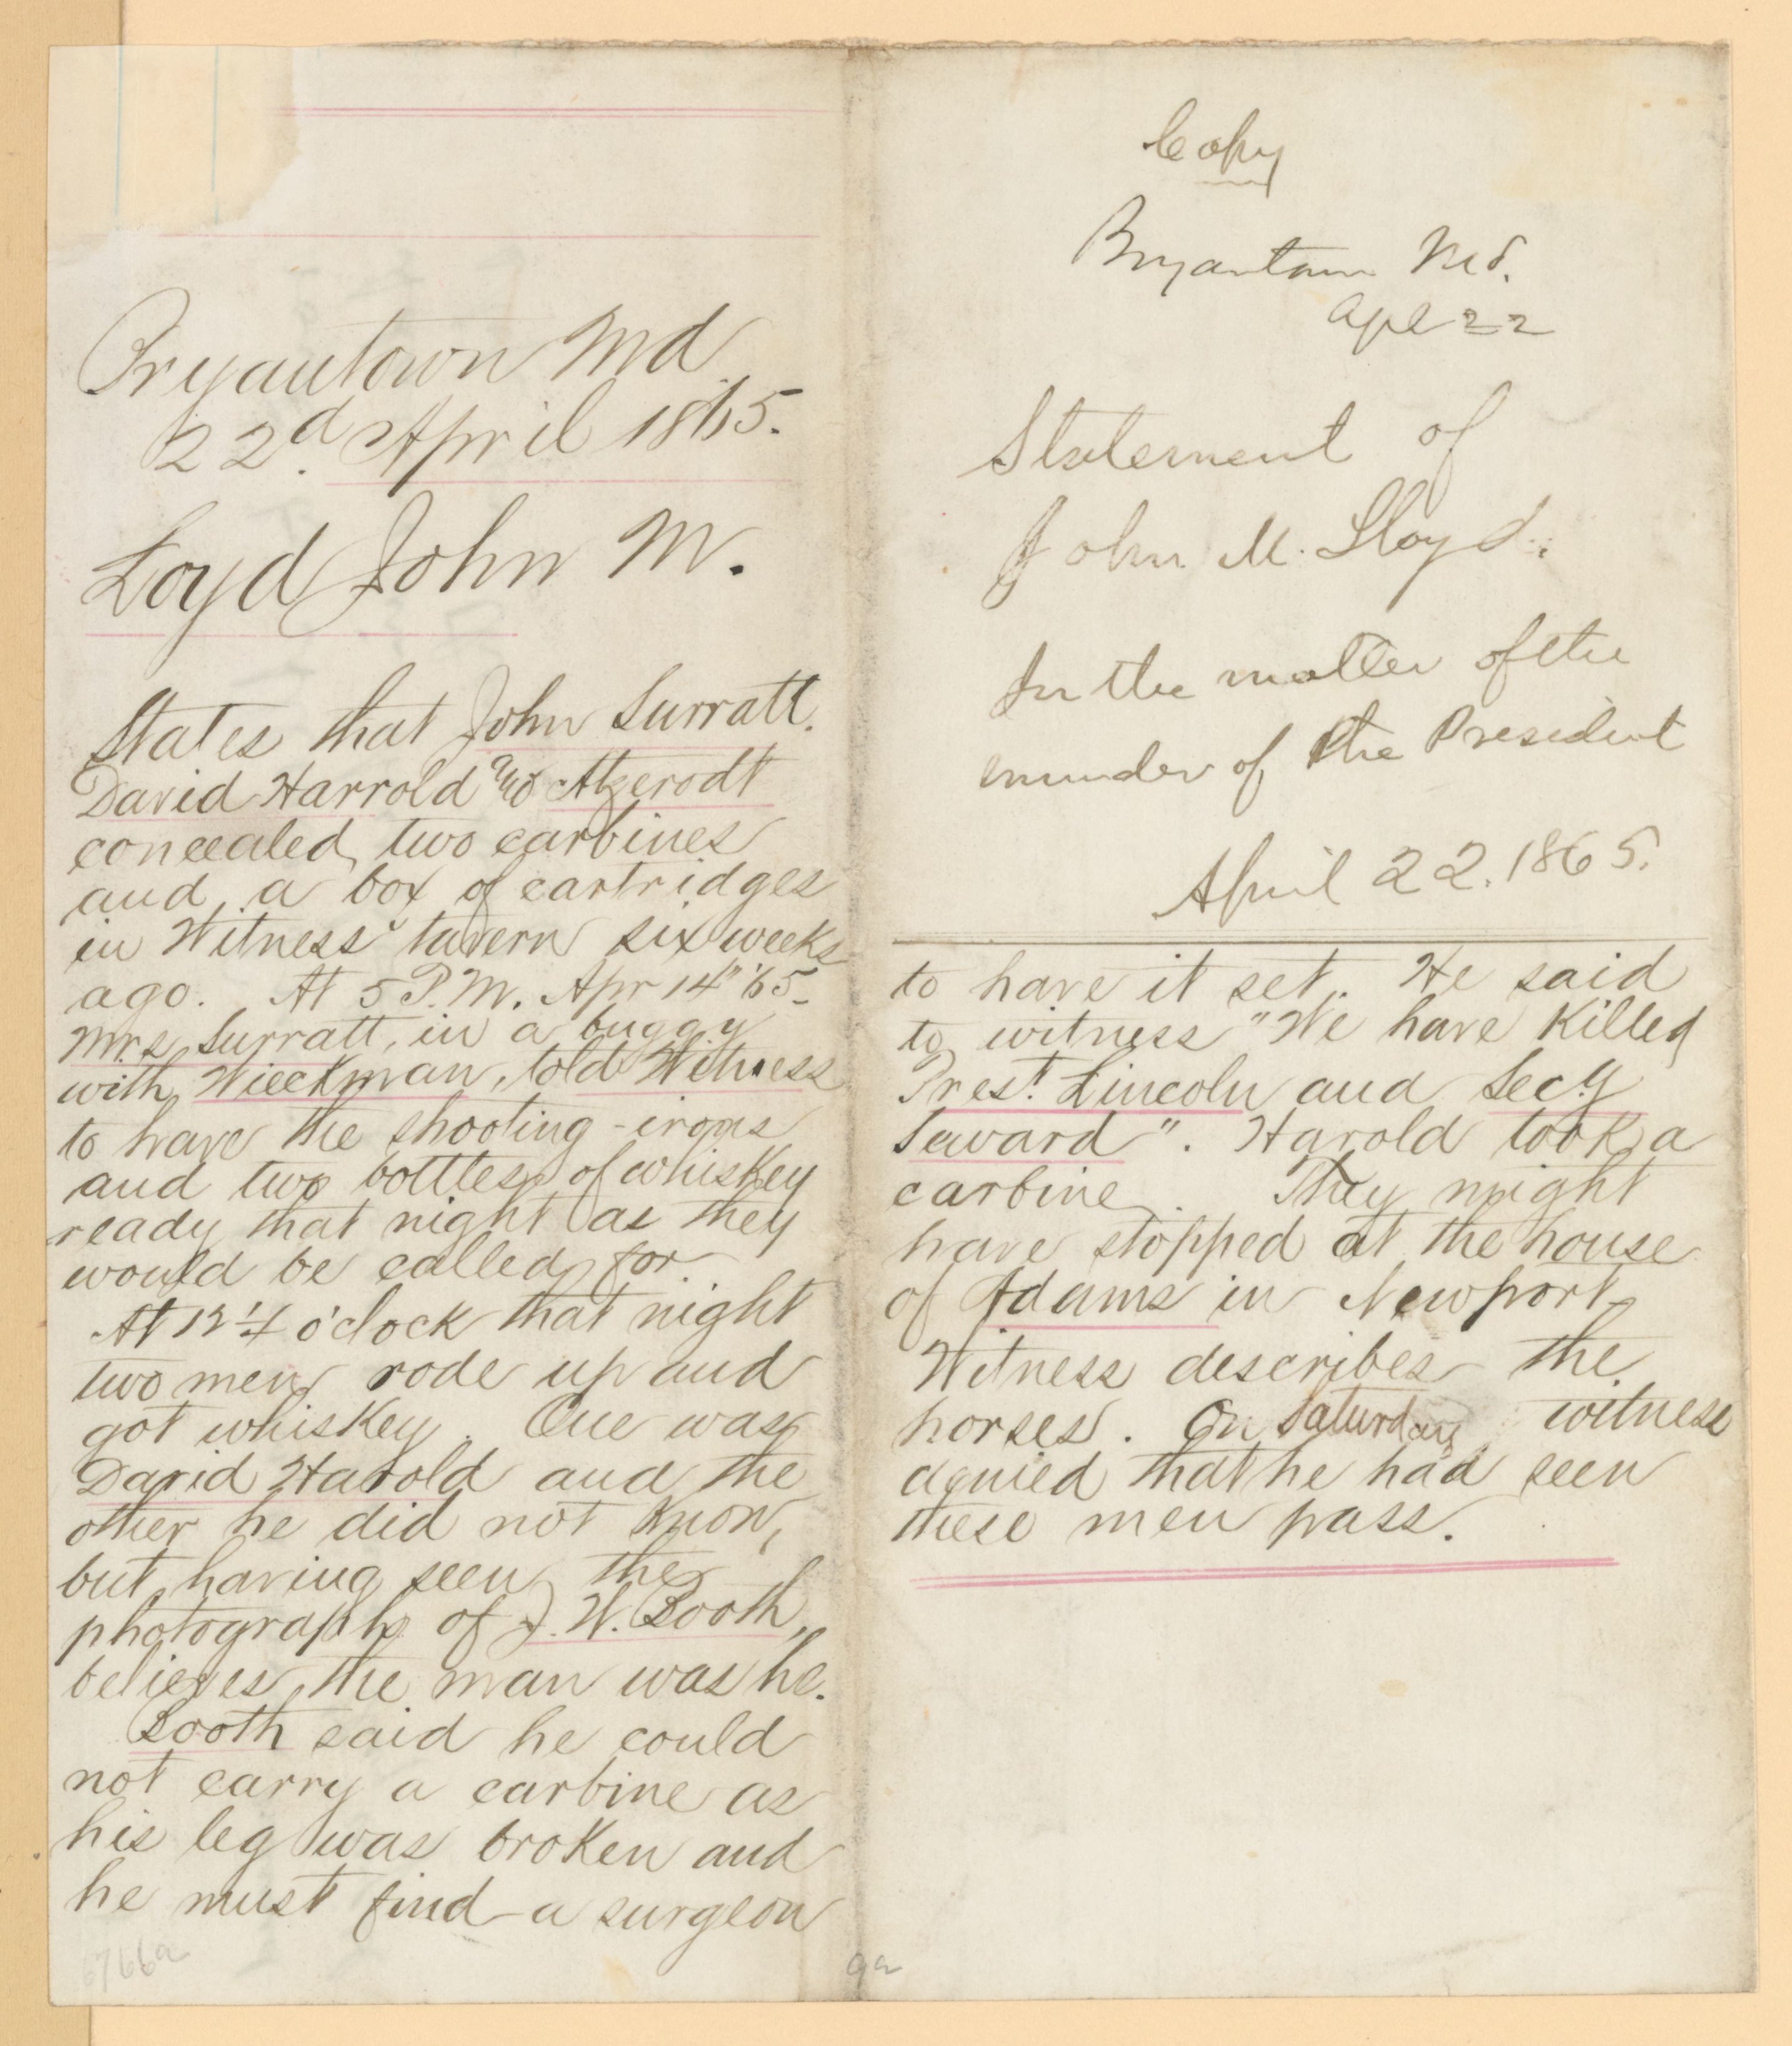 Bryantown Md
22d. April 1865.
Loyd John M.
States that John Surratt.
David Harrold and Atzerodt
concealed two carbines
and a box of cartridges
in Witness' tavern six weeks
ago. At 5 P.M. Apr 14" '65-
Mrs Surratt, in a buggy
with Wieckman, told Witness
to have the shooting-irons
and two bottles of whiskey
ready that night as they
would be called for
At 12 1/4 o'clock that night
two men rode up and
got whiskey. One was
David Harold and the
other he did not know,
but having seen the
photograph of J. W. Booth,
believes the man was he.
Booth said he could
not carry a carbine as
his leg was broken and
he must find a surgeon
6766a
Copy
Bryantown Md.
Apl 22
Statement of
John M. Lloyd.
In the matter of the
murder of the President
April 22. 1865.
to have it set. He said
to witness "We have Killed
Prest. Lincoln and Secy
Seward". Harold took a
carbine. They might
have stopped at the house
of Adams in Newport.
Witness describes the
horses. On Saturday witness
denied that he had seen
these men pass.